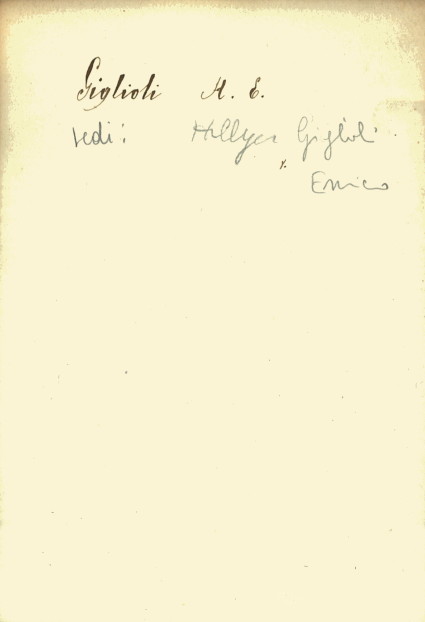 Giglioli H. E.
Vedi: Hillyer Giglioli
Enrico